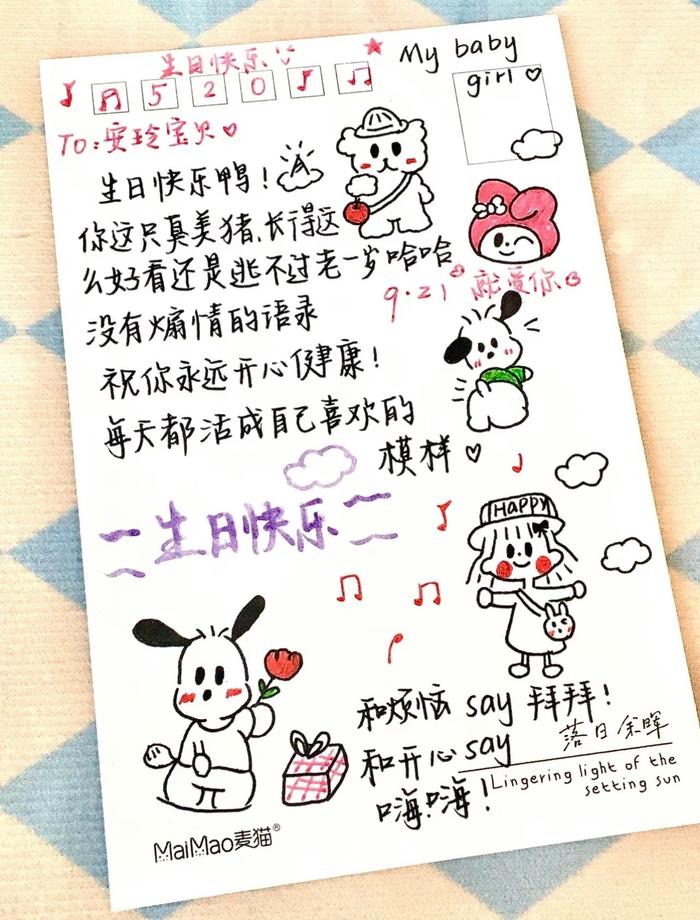 生日快乐
My baby
girl ♡
5 2 0
TO:安玲宝贝♡
生日快乐鸭!
你这只真美猪,长得这
么好看还是逃不过老一岁哈哈
9.21 就爱你
没有煽情的语录
祝你永远开心健康!
每天都活成自己喜欢的
模样♡
~生日快乐~
HAPPY
和烦恼 say 拜拜!
和开心 say
嗨!嗨!
落日余晖
Lingering light of the
setting sun
MaiMao麦猫®